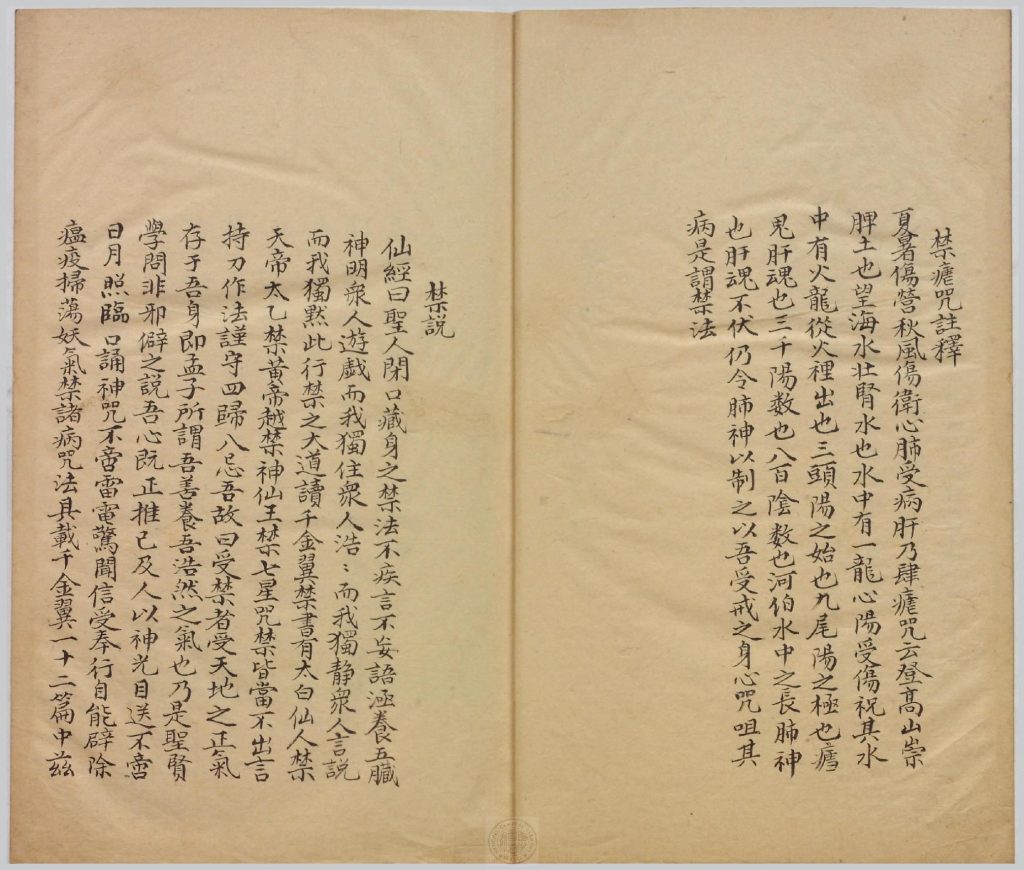 禁瘧咒註釋
夏暑傷營秋風傷衛心肺受病肝乃肆瘧咒云登高山崇
脾土也望海水壯腎水也水中有一龍心陽受傷祝其水
中有火龍從火裡出也三頭陽之始也九尾陽之極也瘧
鬼肝魂也三千陽数也八百陰数也河伯水中之長肺神
也肝魂不伏仍令肺神以制之以吾受戒之身心咒咀其
病是謂禁法
禁説
仙經曰聖人閉口藏身之禁法不疾言不妄語涵養五臟
神明衆人遊戯而我獨住衆人浩〻而我獨静衆人言説
而我獨黙此行禁之大道讀千金翼禁書有太白仙人禁
天帝太乙禁黄帝越禁神仙王禁七星咒禁皆當不出言
持刀作法謹守四歸八忌吾故曰受禁者受天地之正氣
存于吾身即孟子所謂吾善養吾浩然之氣也乃是聖賢
學問非邪僻之説吾心既正推己及人以神光目送不啻
日月照臨口誦神咒不啻雷電驚聞信受奉行自能辟除
瘟疫掃蕩妖氣禁諸病咒法具載千金翼一十二篇中玆